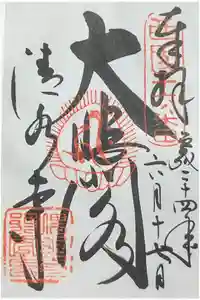 奉拝
平成二十四年
六月十七日
大悲閣
清水寺